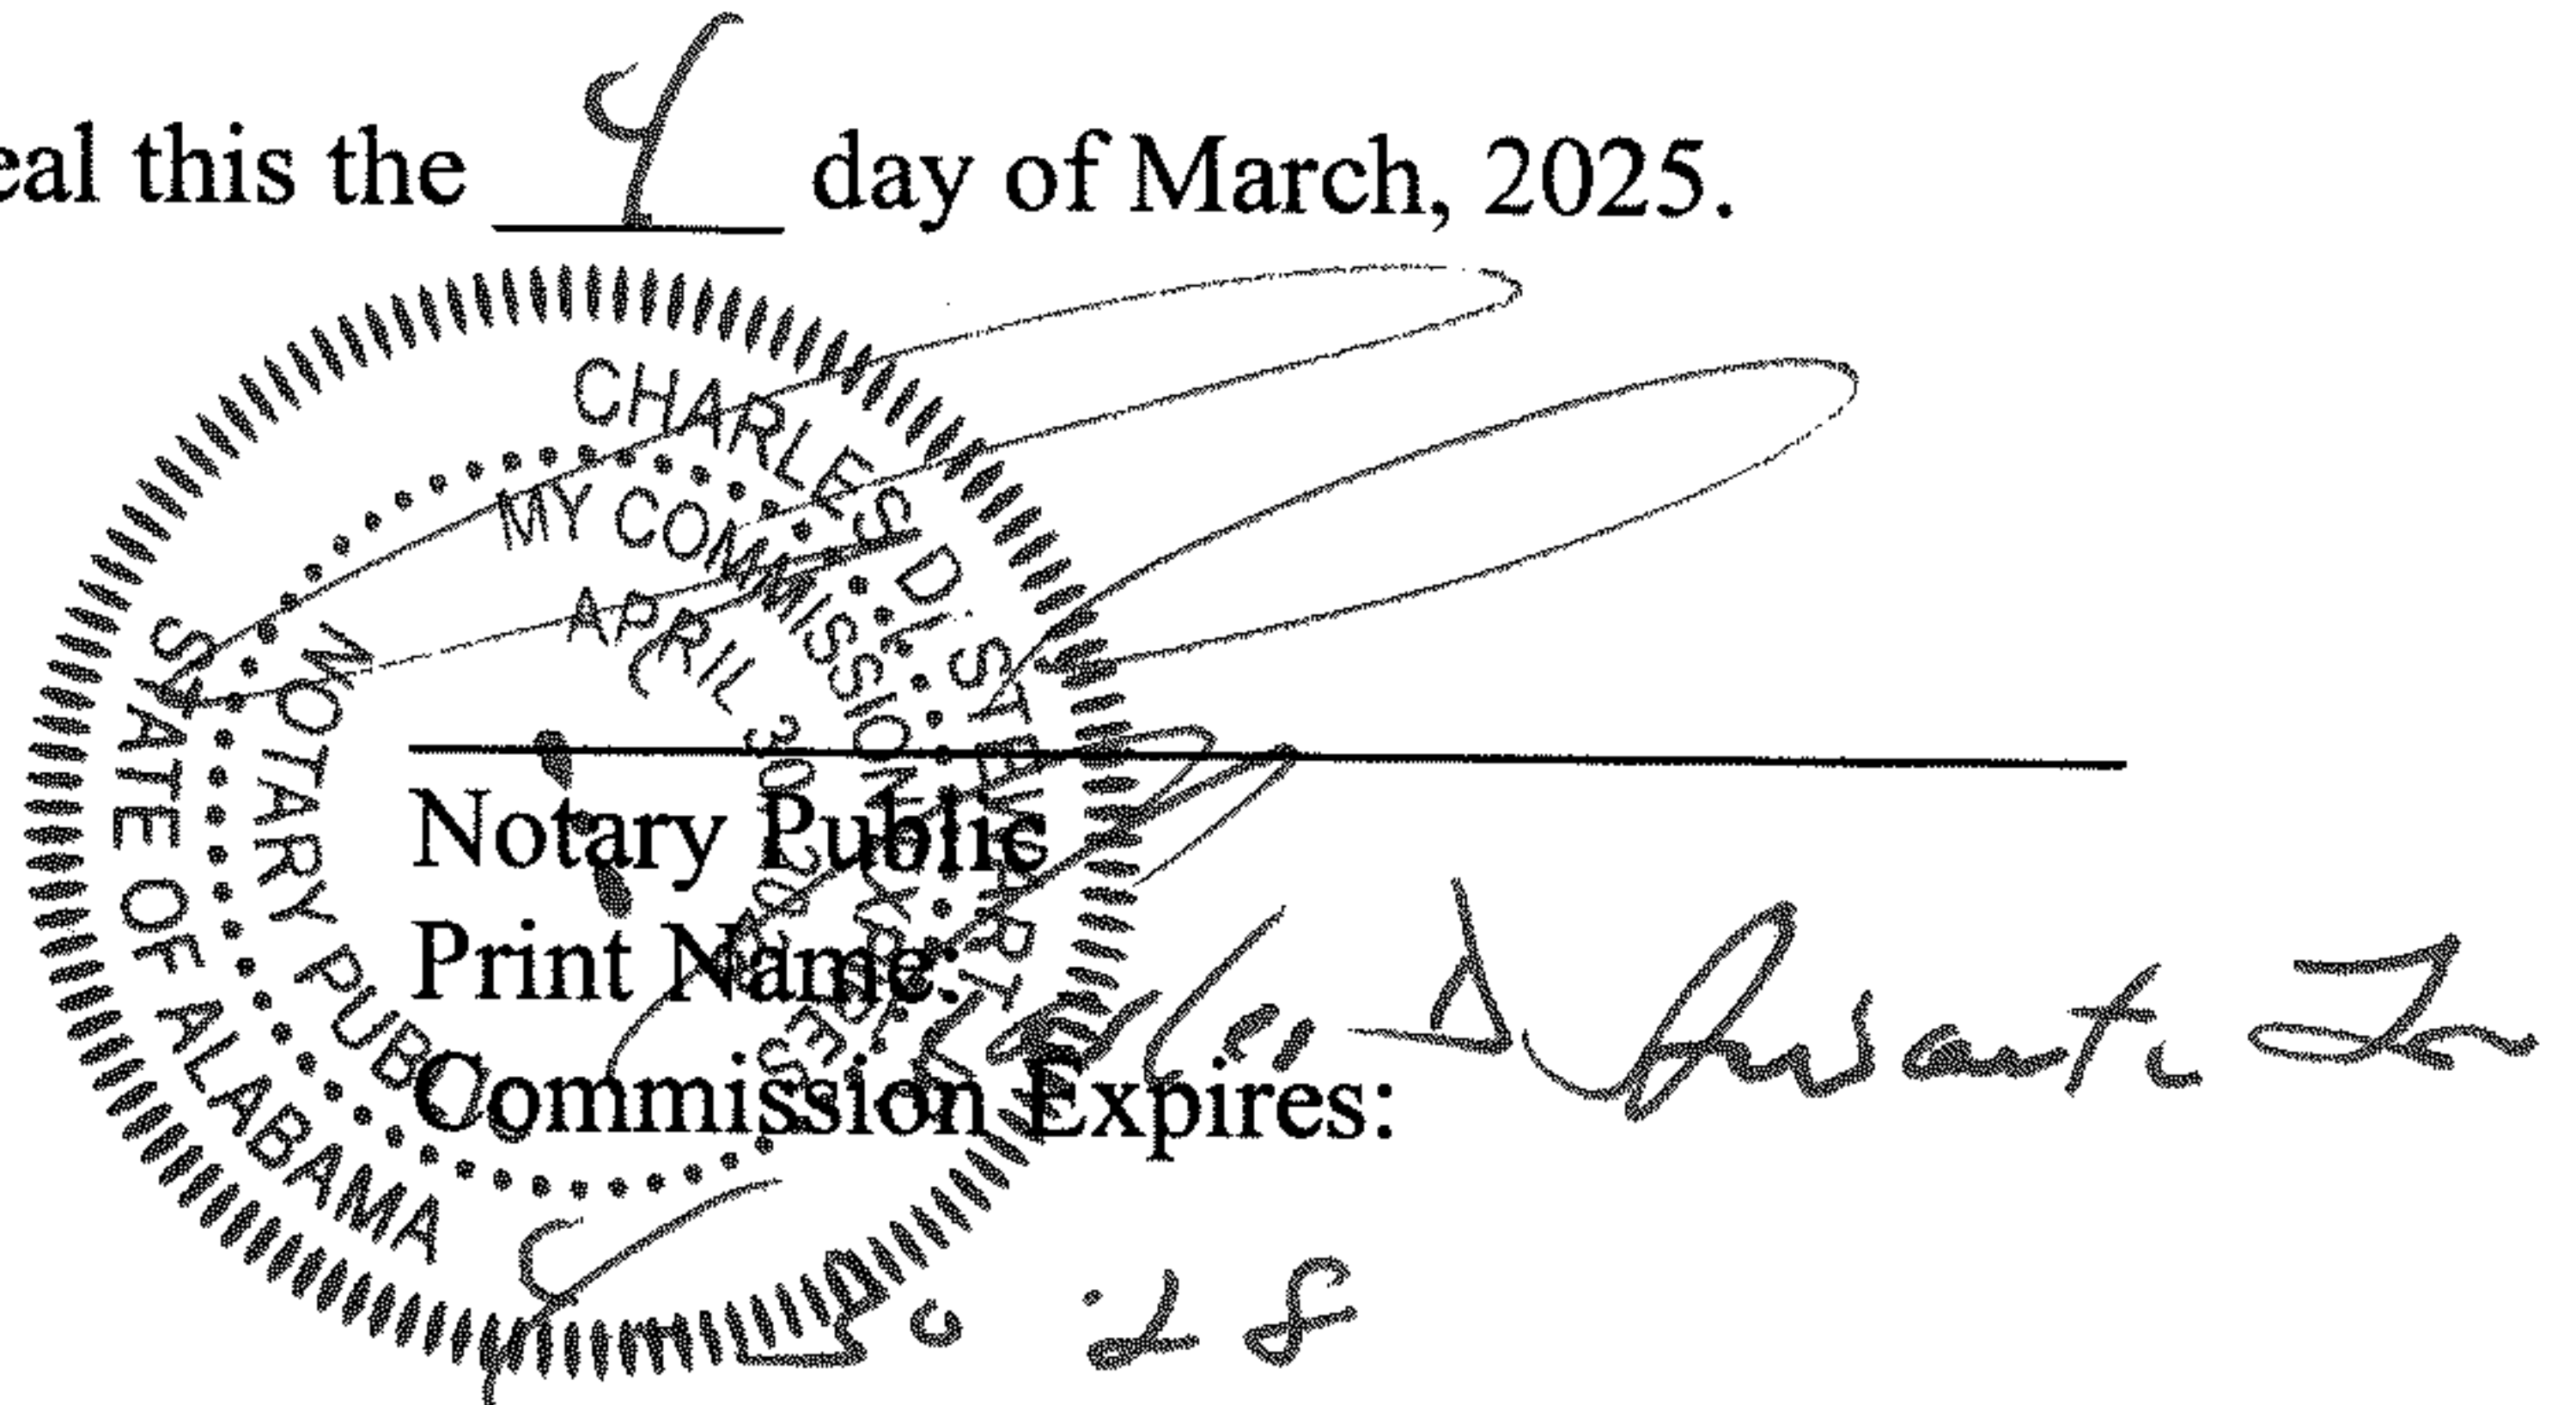 eal this the 4 day of March, 2025.
CHARLES D. STEWART
MY COMMISSION EXPIRES
APRIL 30, 2028
NOTARY PUBLIC
STATE OF ALABAMA
Notary Public
Print Name: Charles D. Stewart Jr
Commission Expires:
4-30-28